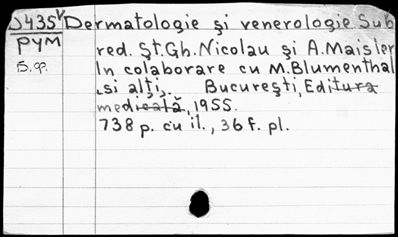 J435v Dermatologie şi venerologie Sub
PYM red. Şt.Gh. Nicolau şi A. Maisler
In colaborare cu M. Blumenthal
şi alţi,. Bucureşti, Editura
medicală, 1955.
738 p. cu il., 36 f. pl.